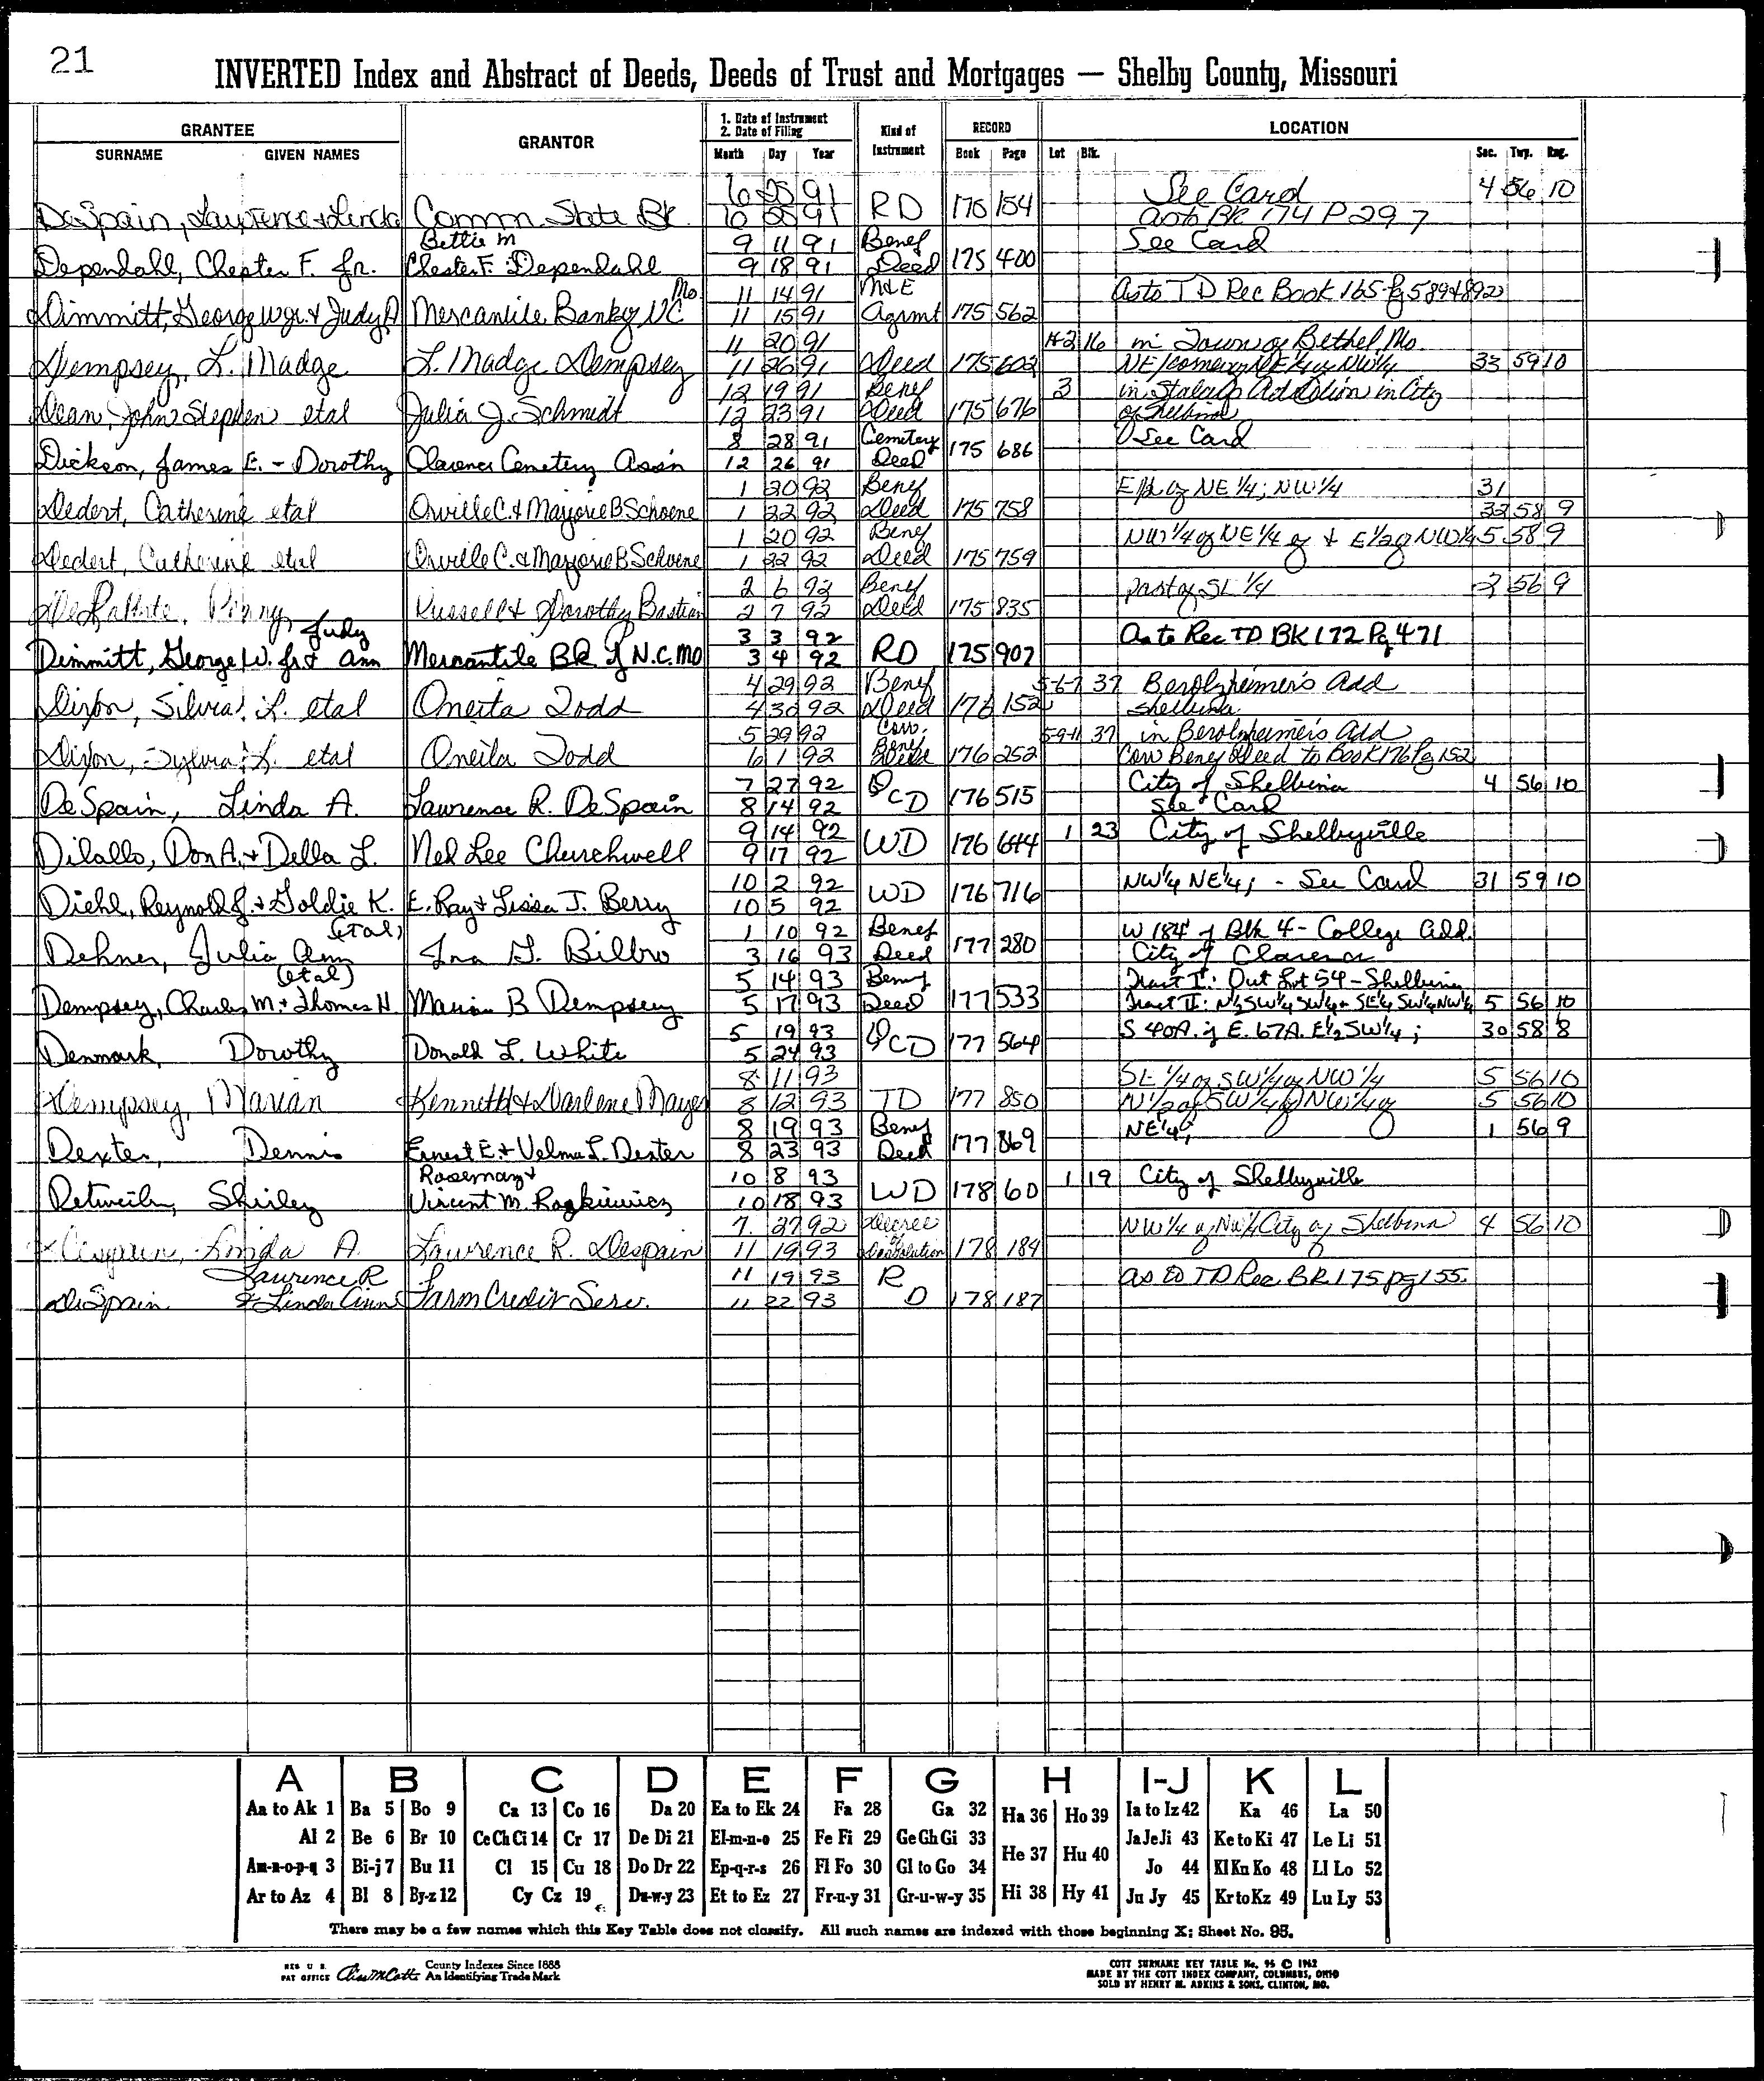 21
INVERTED Index and Abstract of Deeds, Deeds of Trust and Mortgages — Shelby County, Missouri
GRANTEE
SURNAME GIVEN NAMES
GRANTOR
1. Date of Instrument
2. Date of Filing
Month Day Year
Kind of Instrument
RECORD
Book Page
LOCATION
Lot Blk. Sec. Twp. Rng.
6 25 91 See Card 4 56 10
DeSpain, Lawrence & Linda Comm. State Bk. 6 25 91 RD 175 154 as to BK 174 P 297
Bettie M 9 11 91 Benef See Card
Dependahl, Chester F. Jr. Chester F. Dependahl 9 18 91 Deed 175 400
Mo. 11 14 91 M&E as to TD Rec Book 165 Pg 589 & 892
Dimmitt, George W Jr. & Judy A Mercantile Bank of NC 11 15 91 Agrmt 175 562
11 20 91 1+2 16 in Town of Bethel Mo.
Dempsey, L. Madge L. Madge Dempsey 11 26 91 Deed 175 602 NE/corner NE 1/4 of NW 1/4 33 59 10
12 19 91 Benef 3 in Addition in City
Dean, John Stephen etal Julia J. Schmidt 12 23 91 Deed 175 676 of Shelbina
8 28 91 Cemetery See Card
Dickson, James E. - Dorothy Clarence Cemetery Ass'n 12 26 91 Deed 175 686
1 20 92 Benef E 1/2 of NE 1/4; NW 1/4 31
Dedert, Catherine etal Orville C. & Marjorie B Schoene 1 22 92 Deed 175 758 32 58 9
1 20 92 Benef NW 1/4 of NE 1/4 of & E 1/2 of NW 1/4 5 58 9
Dedert, Catherine etal Orville C. & Marjorie B Schoene 1 22 92 Deed 175 759
2 6 92 Benef part of SE 1/4 2 56 9
Russell & Dorothy Bastian 2 7 92 Deed 175 835
Judy 3 3 92 As to Rec TD BK 172 Pg 471
Dimmitt, George W. Jr & Ann Mercantile BK of N.C. MO 3 4 92 RD 175 907
4 29 92 Benef 5-6-7 37 Berolzheimer's Add
Dixon, Silvia L. etal Oneita Todd 4 30 92 Deed 176 152 Shelbina
5 29 92 Corr. 5-9-11 37 in Berolzheimer's Add
Dixon, Sylvia L. etal Oneita Todd 6 1 92 Benef Deed 176 252 Corr Benef Deed to Book 176 Pg 152
7 27 92 City of Shelbina 4 56 10
DeSpain, Linda A. Lawrence R. DeSpain 8 14 92 QCD 176 515 See Card
9 14 92 1 23 City of Shelbyville
Dilallo, Don A. & Della L. Nel Lee Churchwell 9 17 92 WD 176 644
10 2 92 NW 1/4 NE 1/4; - See Card 31 59 10
Diehl, Reynold J. & Goldie K. E. Ray & Lissa J. Berry 10 5 92 WD 176 716
(etal) 1 10 92 Benef W 184' of Blk 4 - College Add.
Dehner, Julia Ann Ina G. Bilbro 3 16 93 Deed 177 280 City of Clarence
(etal) 5 14 93 Benef Tract I: Out Lot 54 - Shelbina
Dempsey, Charles M. & Thomas H. Marian B Dempsey 5 17 93 Deed 177 533 Tract II: N 1/2 SW 1/4 SW 1/4 & SE 1/4 SW 1/4 NW 1/4 5 56 10
5 19 93 S 40A. of E. 67A. E 1/2 SW 1/4; 30 58 8
Denmark, Dorothy Donald L. White 5 24 93 QCD 177 564
8 11 93 SE 1/4 of SW 1/4 of NW 1/4 5 56 10
Dempsey, Marian Kenneth & Darlene Mayes 8 12 93 TD 177 850 N 1/2 of SW 1/4 of NW 1/4 of 5 56 10
8 19 93 Benef NE 1/4; 1 56 9
Dexter, Dennis Ernest E. & Velma L. Dexter 8 23 93 Deed 177 869
Rosemary & 10 8 93 1 19 City of Shelbyville
Detweiler, Shirley Vincent M. Rogkiewicz 10 18 93 WD 178 60
7 27 92 Decree NW 1/4 of NW 1/4 City of Shelbina 4 56 10
Despain, Linda A. Lawrence R. Despain 11 19 93 of Dissolution 178 184
Lawrence R 11 19 93 R as to TD Rec BK 175 pg 155.
DeSpain & Linda Ann Farm Credit Serv. 11 22 93 D 178 187
A B C D E F G H I-J K L
Aa to Ak 1 Ba 5 Bo 9 Ca 13 Co 16 Da 20 Ea to Ek 24 Fa 28 Ga 32 Ha 36 Ho 39 Ia to Iz 42 Ka 46 La 50
Al 2 Be 6 Br 10 Ce Ch Ci 14 Cr 17 De Di 21 El-m-n-o 25 Fe Fi 29 Ge Gh Gi 33 He 37 Hu 40 Ja Je Ji 43 Ke to Ki 47 Le Li 51
Am-n-o-p-q 3 Bi-j 7 Bu 11 Cl 15 Cu 18 Do Dr 22 Ep-q-r-s 26 Fl Fo 30 Gl to Go 34 Jo 44 Kl Kn Ko 48 Ll Lo 52
Ar to Az 4 Bl 8 By-z 12 Cy Cz 19 Du-w-y 23 Et to Ez 27 Fr-u-y 31 Gr-u-w-y 35 Hi 38 Hy 41 Ju Jy 45 Kr to Kz 49 Lu Ly 53
There may be a few names which this Key Table does not classify. All such names are indexed with those beginning X; Sheet No. 95.
REG U S PAT OFFICE County Indexes Since 1888 An Identifying Trade Mark
COTT SURNAME KEY TABLE No. 95 © 1962
MADE BY THE COTT INDEX COMPANY, COLUMBUS, OHIO
SOLD BY HENRY M. ADKINS & SONS, CLINTON, MO.